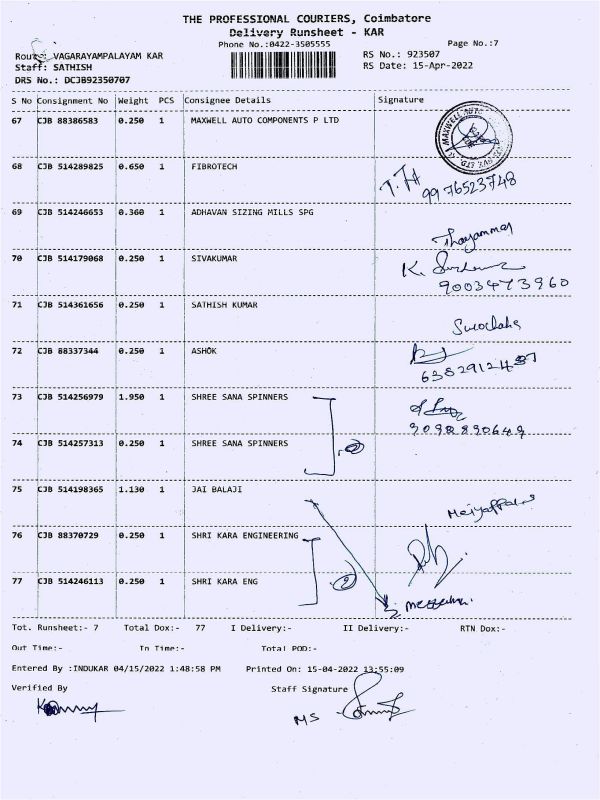 THE PROFESSIONAL COURIERS, Coimbatore
Delivery Runsheet - KAR
Phone No.:0422-3505555
Page No.:7
Route: VAGARAYAMPALAYAM KAR
RS No.: 923507
Staff: SATHISH
RS Date: 15-Apr-2022
DRS No.: DCJB92350707
S No Consignment No Weight PCS Consignee Details Signature
67 CJB 88386583 0.250 1 MAXWELL AUTO COMPONENTS P LTD
MAXWELL AUTO
68 CJB 514289825 0.650 1 FIBROTECH
9976523748
69 CJB 514246653 0.360 1 ADHAVAN SIZING MILLS SPG
Thayammal
70 CJB 514179068 0.250 1 SIVAKUMAR
9003473960
71 CJB 514361656 0.250 1 SATHISH KUMAR
72 CJB 88337344 0.250 1 ASHOK
73 CJB 514256979 1.950 1 SHREE SANA SPINNERS
9098890649
74 CJB 514257313 0.250 1 SHREE SANA SPINNERS
2
75 CJB 514198365 1.130 1 JAI BALAJI
76 CJB 88370729 0.250 1 SHRI KARA ENGINEERING
77 CJB 514246113 0.250 1 SHRI KARA ENG
2
Tot. Runsheet:- 7 Total Dox:- 77 I Delivery:- II Delivery:- RTN Dox:-
Out Time:- In Time:- Total POD:-
Entered By :INDUKAR 04/15/2022 1:48:58 PM Printed On: 15-04-2022 13:55:09
Verified By Staff Signature
MS